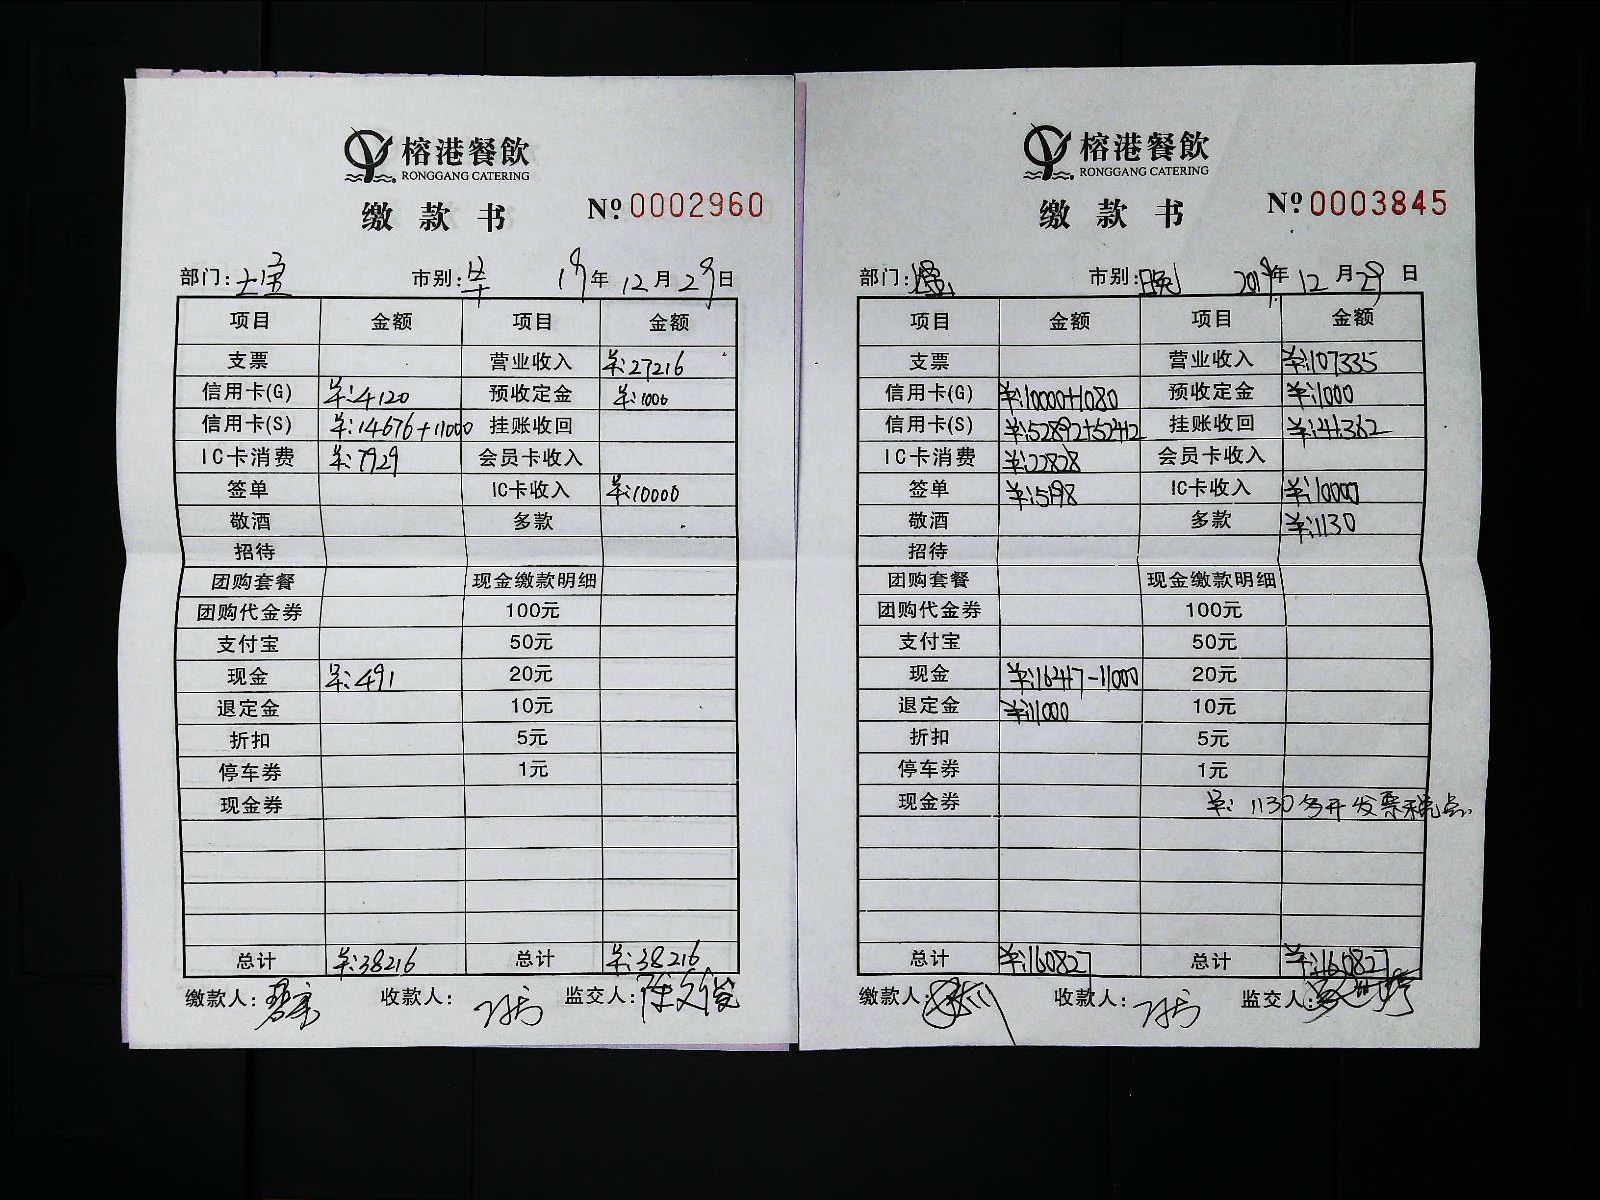 榕港餐飲
RONGGANG CATERING
缴款书
Nº 0002960
部门: 市别: 19年12月29日
项目 金额 项目 金额
支票 营业收入 ¥:27216
信用卡(G) ¥:4120 预收定金 ¥:1000
信用卡(S) ¥:14676+11000 挂账收回
IC卡消费 ¥:7929 会员卡收入
签单 IC卡收入 ¥:10000
敬酒 多款
招待
团购套餐 现金缴款明细
团购代金券 100元
支付宝 50元
现金 ¥:491 20元
退定金 10元
折扣 5元
停车券 1元
现金券
总计 ¥:38216 总计 ¥:38216
缴款人: 收款人: 监交人:
榕港餐飲
RONGGANG CATERING
缴款书
Nº 0003845
部门: 市别:晚 2019年12月29日
项目 金额 项目 金额
支票 营业收入 ¥:107335
信用卡(G) ¥:10000+1080 预收定金 ¥:1000
信用卡(S) ¥:52892+52412 挂账收回 ¥:41362
IC卡消费 ¥:22828 会员卡收入
签单 ¥:5198 IC卡收入 ¥:10000
敬酒 多款 ¥:1130
招待
团购套餐 现金缴款明细
团购代金券 100元
支付宝 50元
现金 ¥:16417-11000 20元
退定金 ¥:1000 10元
折扣 5元
停车券 1元
现金券 ¥:1130多开发票税点.
总计 ¥:160827 总计 ¥:160827
缴款人: 收款人: 监交人: